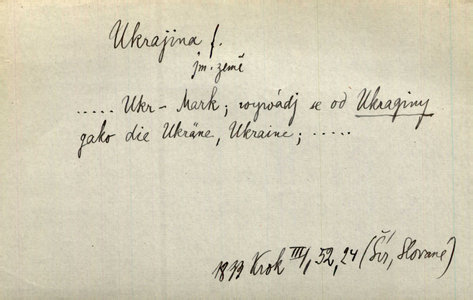 Ukrajina f.
jm. země
..... Ukr-Mark; wywádj se od Ukraginy
gako die Ukräne, Ukraine; .....
1833 Krok III/1, 52, 24 (Šír, Slované)